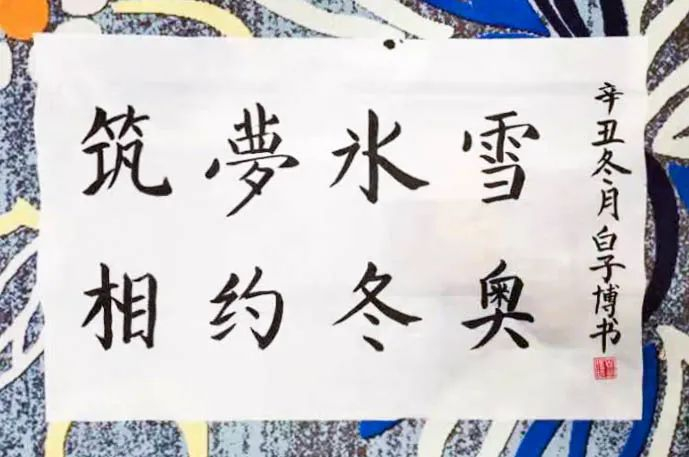 筑夢冰雪
相约冬奥
辛丑冬月白子博书